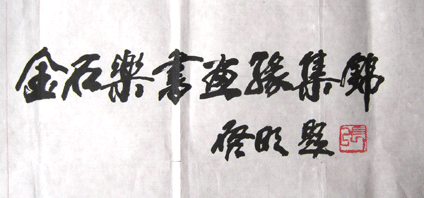 金石樂書画緣集錦
啓明題
張